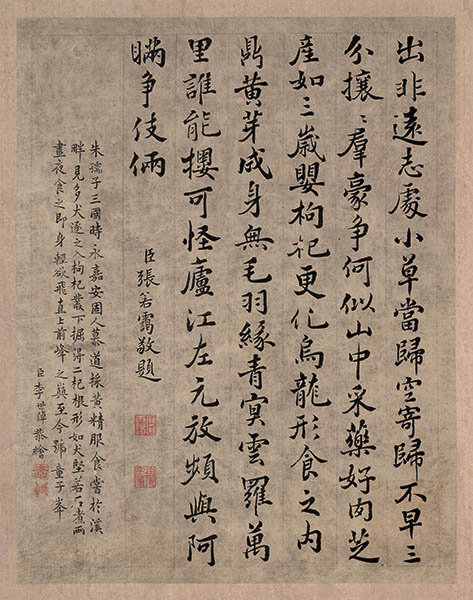 出非遠志處小草當歸空寄歸不早三
分攘〻羣豪爭何似山中采藥好肉芝
產如三歲嬰枸杞更化烏龍形食之內
鼎黃芽成身無毛羽緣青冥雲羅萬
里誰能攖可怪廬江左元放頻與阿
瞞爭伎倆
臣張若靄敬題
朱孺子三國時永嘉安固人慕道採黃精服食嘗於溪
畔見多犬逐之入枸杞叢下掘得二杞根形如犬堅若石煮兩
晝夜食之即身輕欲飛直上前峰之巔至今號童子峯
臣李世倬恭繪